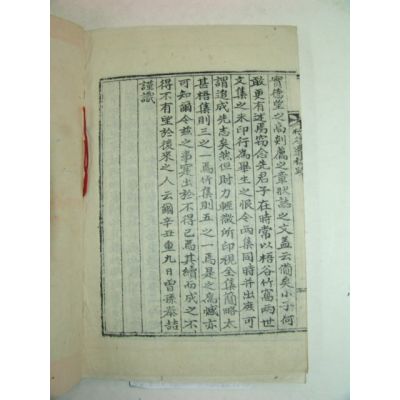 實德望之高刻厲之章狀誌之文盖云備矣小子何
敢更有述焉窃念先君子在時常以梧谷竹窩兩世
文集之未印行爲畢生之恨令兩集同時并出庶可
謂追成先志矣然但財力輕微所印視全集簡略太
甚梧集則三之一焉竹集則五之一焉是之爲憾亦
可知爾令玆之事寔出於不得已焉其續而成之不
得不有望於後來之人云爾辛丑重九日曾孫泰喆
謹識